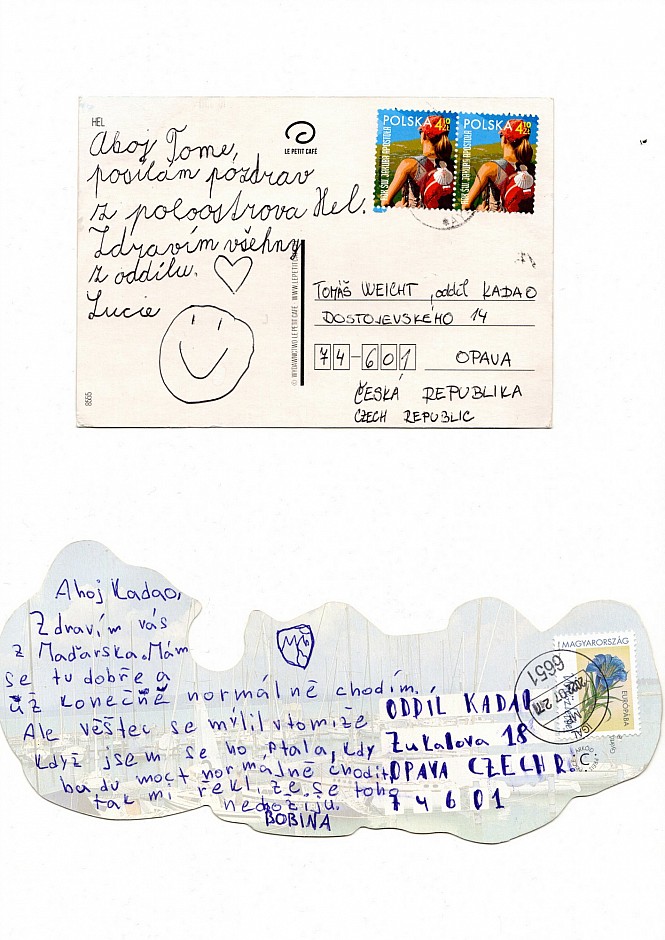 HEL
LE PETIT CAFÉ
POLSKA 4,10 ZŁ
POLSKA 4,10 ZŁ
Ahoj Tome,
posílám pozdrav
z poloostrova Hel.
Zdravím všehny
z oddílu.
Lucie
8565
© WYDAWNICTWO LE PETIT CAFÉ
TOMÁŠ WEICHT, oddíl KADAO
DOSTOJEVSKÉHO 14
74-601 OPAVA
ČESKÁ REPUBLIKA
CZECH REPUBLIC
Ahoj Kadao,
Zdravím vás
z Maďarska. Mám
se tu dobře a
už konečně normálně chodím.
Ale věštec se mýlil v tom že
když jsem se ho ptala, kdy
badu moct normálně chodit,
tak mi řekl, že se toho
nedožiju.
BOBINA
MAGYARORSZÁG
EURÓPÁBA
6651
IGAL
ODDÍL KADAO
Zukalova 18
OPAVA CZECH R.
74601